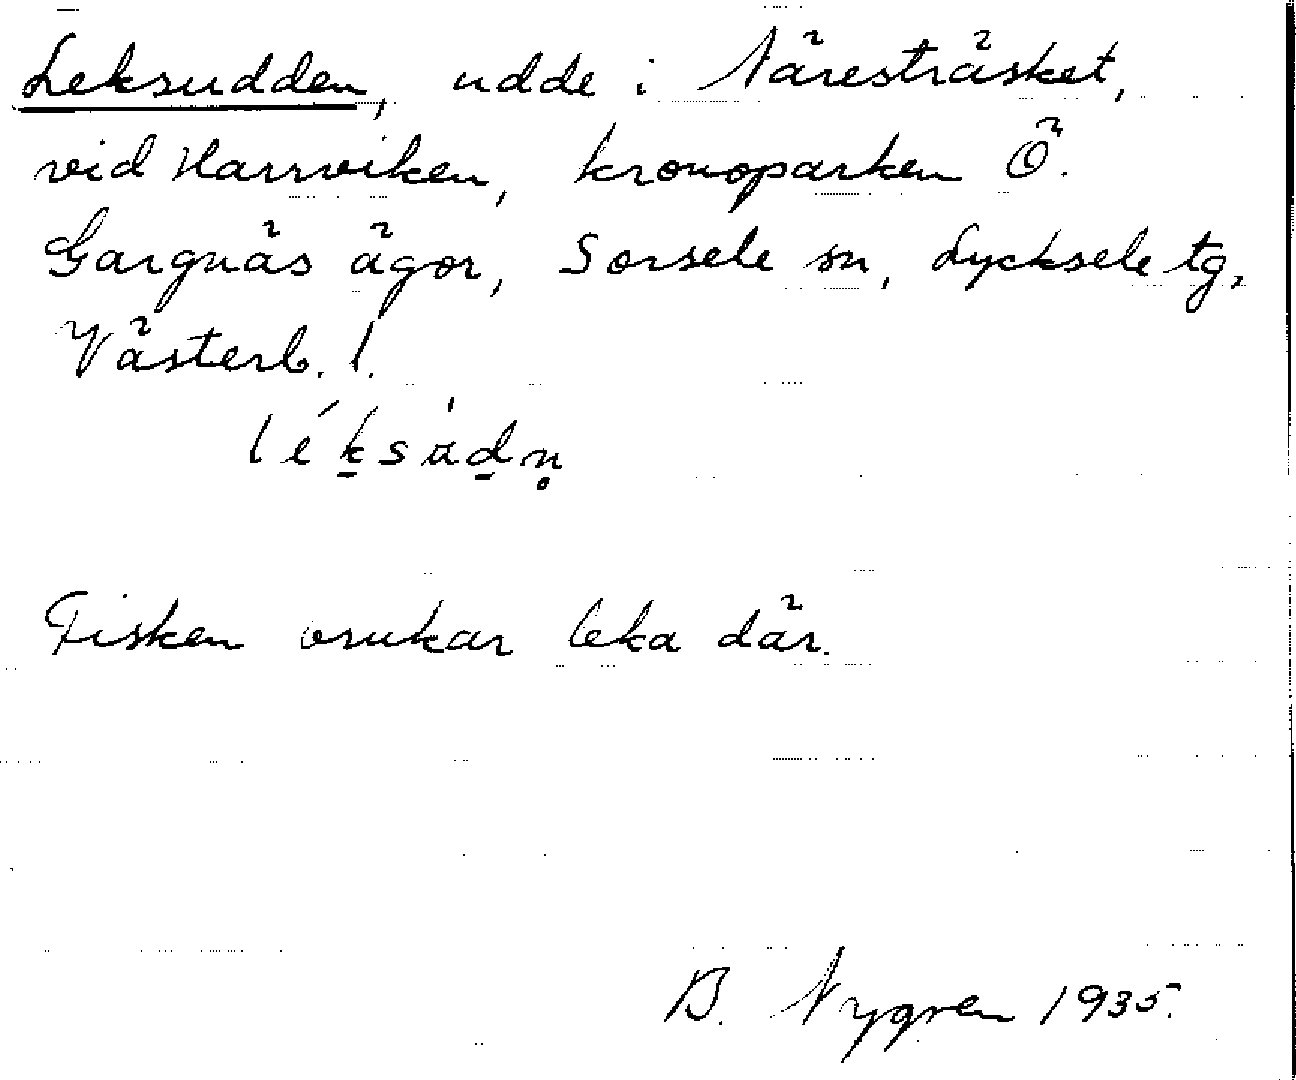 Leksudden, udde i Näresträsket,
vid Harrviken, kronoparken Ö.
Gargnäs ägor, Sorsele sn, Lycksele tg,
Västerb. l.
léksùdn̥
Fisken brukar leka där.
B. Nygren 1935.